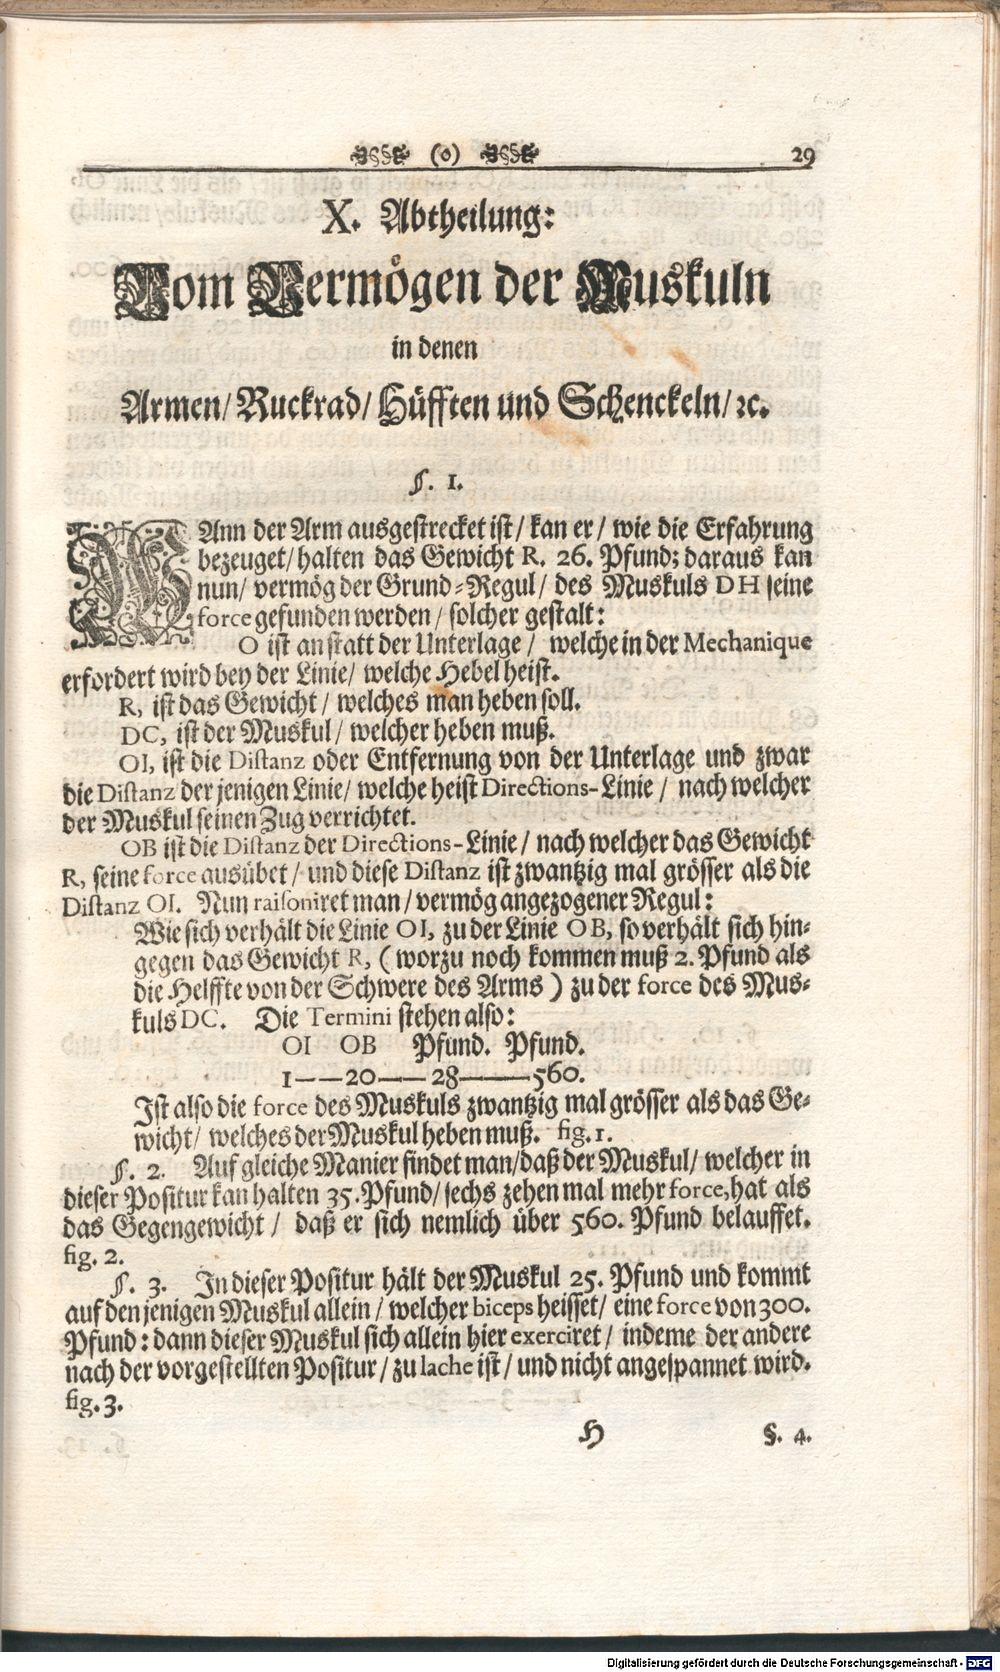 (0) 29
X. Abtheilung:
Vom Vermögen der Muskuln
in denen
Armen/ Ruckrad/ Hüfften und Schenckeln/ ꝛc.
§. 1.
WAnn der Arm ausgestrecket ist/ kan er/ wie die Erfahrung
bezeuget/ halten das Gewicht R. 26. Pfund; daraus kan
nun/ vermög der Grund-Regul/ des Muskuls DH seine
force gefunden werden/ solcher gestalt:
O ist an statt der Unterlage/ welche in der Mechanique
erfordert wird bey der Linie/ welche Hebel heist.
R, ist das Gewicht/ welches man heben soll.
DC, ist der Muskul/ welcher heben muß.
OI, ist die Distanz oder Entfernung von der Unterlage und zwar
die Distanz der jenigen Linie/ welche heist Directions-Linie/ nach welcher
der Muskul seinen Zug verrichtet.
OB ist die Distanz der Directions-Linie/ nach welcher das Gewicht
R, seine force ausübet/ und diese Distanz ist zwantzig mal grösser als die
Distanz OI. Nun raisoniret man/ vermög angezogener Regul:
Wie sich verhält die Linie OI, zu der Linie OB, so verhält sich hin-
gegen das Gewicht R, (worzu noch kommen muß 2. Pfund als
die Helffte von der Schwere des Arms) zu der force des Mus-
kuls DC. Die Termini stehen also:
OI OB Pfund. Pfund.
1——20——28———560.
Ist also die force des Muskuls zwantzig mal grösser als das Ge-
wicht/ welches der Muskul heben muß. fig. 1.
§. 2. Auf gleiche Manier findet man/ daß der Muskul/ welcher in
dieser Positur kan halten 35. Pfund/ sechs zehen mal mehr force, hat als
das Gegengewicht/ daß er sich nemlich über 560. Pfund belauffet.
fig. 2.
§. 3. In dieser Positur hält der Muskul 25. Pfund und kommt
auf den jenigen Muskul allein/ welcher biceps heisset/ eine force von 300.
Pfund: dann dieser Muskul sich allein hier exerciret/ indeme der andere
nach der vorgestellten Positur/ zu lache ist/ und nicht angespannet wird.
fig. 3.
H §. 4.
Digitalisierung gefördert durch die Deutsche Forschungsgemeinschaft - DFG